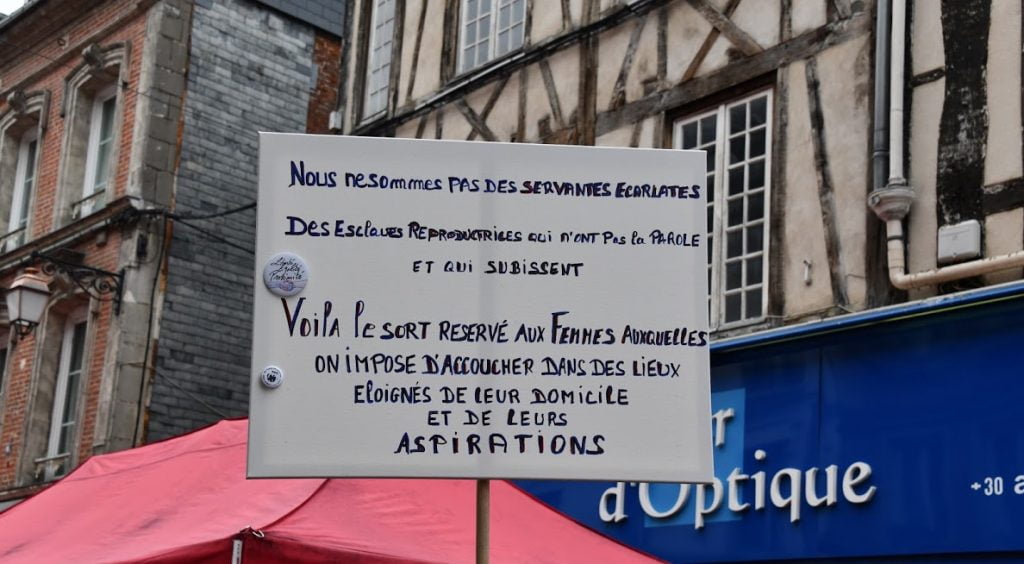 NOUS NE SOMMES PAS DES SERVANTES ECARLATES
DES ESCLAVES REPRODUCTRICES QUI N'ONT PAS LA PAROLE
ET QUI SUBISSENT
VOILA LE SORT RESERVÉ AUX FEMMES AUXQUELLES
ON IMPOSE D'ACCOUCHER DANS DES LIEUX
ELOIGNÉS DE LEUR DOMICILE
ET DE LEURS
ASPIRATIONS
r
d'Optique
+30 a